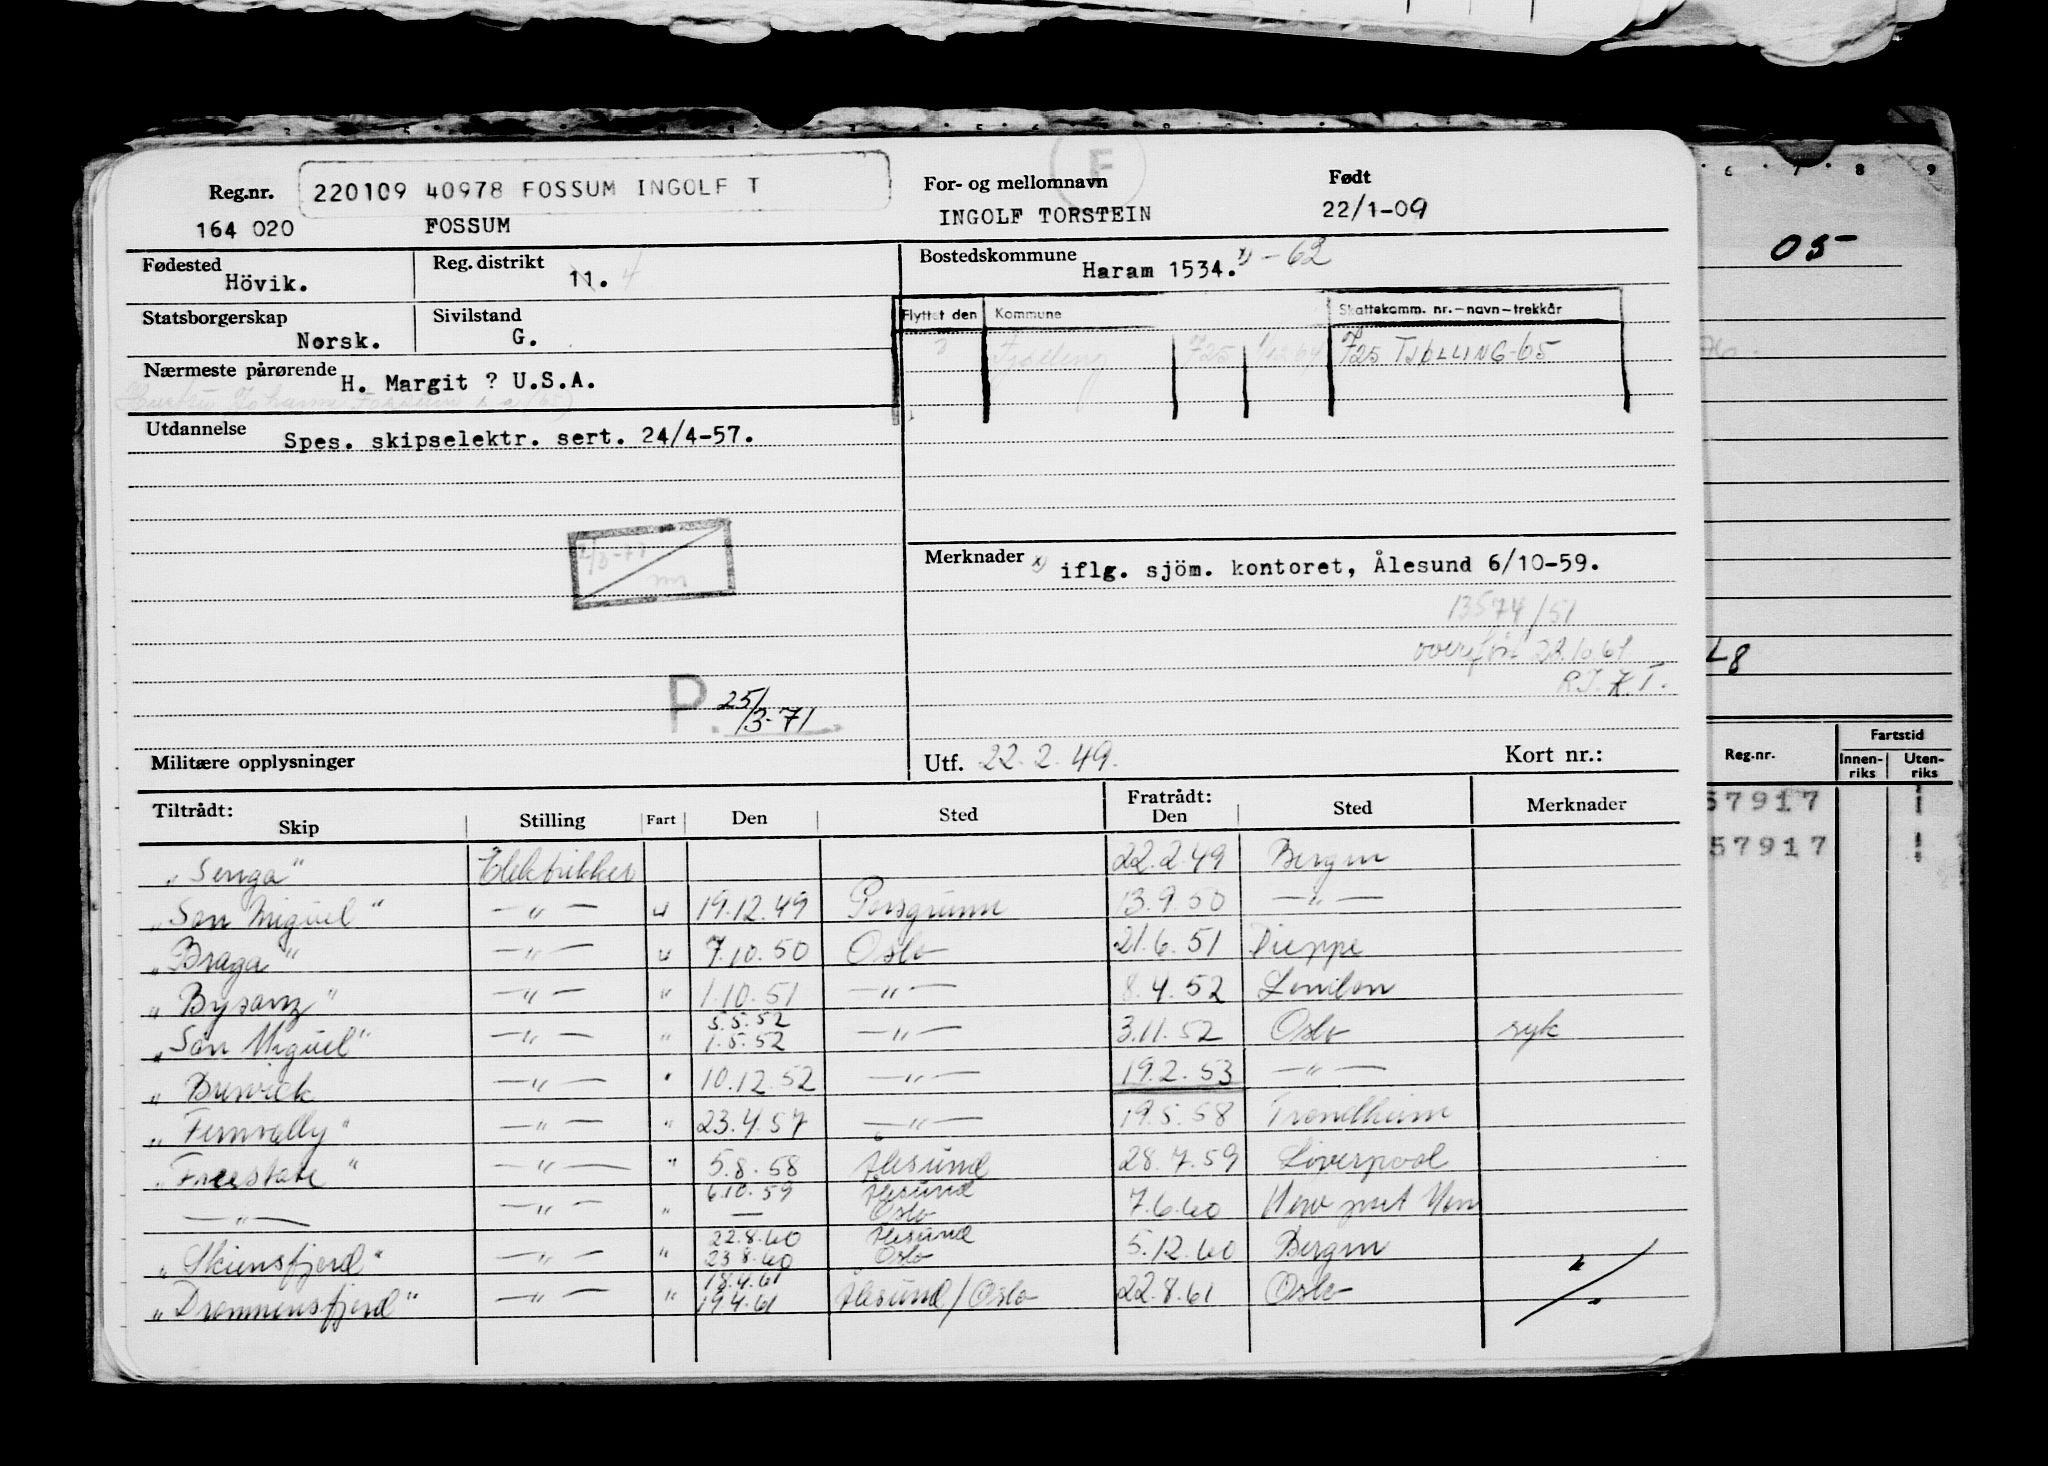 F
Reg.nr. 220109 40978 FOSSUM INGOLF T
For- og mellomnavn Født
164 020 FOSSUM INGOLF TORSTEIN 22/1-09
Fødested Hövik. Reg. distrikt 11. 4
Bostedskommune Haram 1534. x) -62
Statsborgerskap Norsk. Sivilstand G.
Flyttet den Kommune Skattekomm. nr.-navn-trekkår
725 725 TJØLLING-65
Nærmeste pårørende H. Margit ? U.S.A.
Johanna Fossum
Utdannelse Spes. skipselektr. sert. 24/4-57.
Merknader x) iflg. sjöm. kontoret, Ålesund 6/10-59.
13574/51
overført 22.10.61
P. 25/3-71
Militære opplysninger
Utf. 22.2.49. Kort nr.:
Tiltrådt: Skip Stilling Fart Den Sted Fratrådt: Den Sted Merknader
"Senga" Elektrikker 22.2.49 Bergen
"San Miguel" —"— u 19.12.49 Porsgrunn 13.9.50 —"—
"Braga" —"— u 7.10.50 Oslo 21.6.51 Dieppe
"Bysanz" —"— " 1.10.51 —"— 8.4.52 London
"San Miguel" —"— " 5.5.52 1.5.52 —"— 3.11.52 Oslo syk
"Buswick —"— " 10.12.52 —"— 19.2.53 —"—
"Fernvally" —"— " 23.4.57 —"— 19.5.58 Trondheim
"Freestate" —"— " 5.8.58 Ålesund 28.7.59 Liverpool
—"— —"— " 6.10.59 — Ålesund Oslo 7.6.60 New port
"Skiensfjord" —"— " 22.8.60 23.8.60 Ålesund Oslo 5.12.60 Bergen
"Drammensfjord" —"— " 18.4.61 19.4.61 Ålesund/Oslo 22.8.61 Oslo
6 7 8 9
05
L8
Reg.nr. Fartstid
Innenriks Utenriks
57917
57917